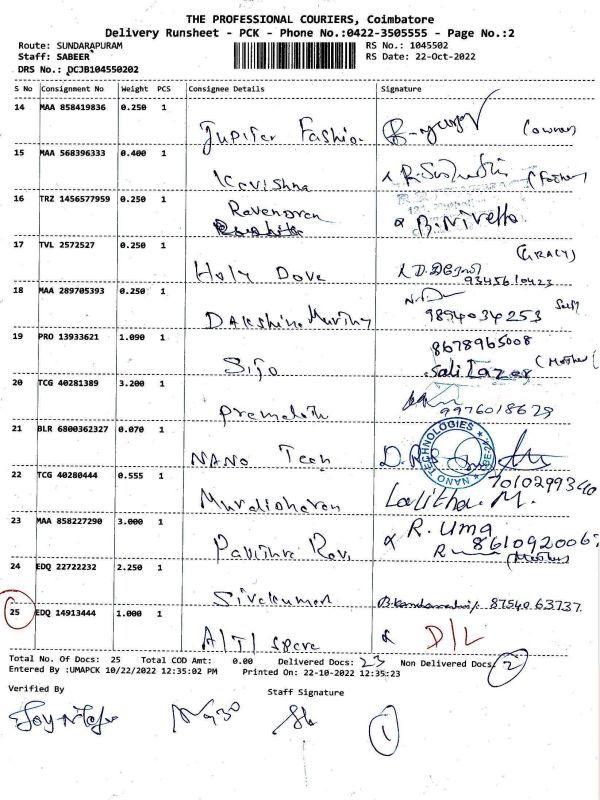 THE PROFESSIONAL COURIERS, Coimbatore
Delivery Runsheet - PCK - Phone No.:0422-3505555 - Page No.:2
Route: SUNDARAPURAM
RS No.: 1045502
Staff: SABEER
RS Date: 22-Oct-2022
DRS No.: DCJB104550202
S No Consignment No Weight PCS Consignee Details Signature
14 MAA 858419836 0.250 1
Jupiter Fashion (owner)
15 MAA 568396333 0.400 1
Kavishna (Father)
16 TRZ 1456577959 0.250 1
B. Nivetha
17 TVL 2572527 0.250 1
(GRACY)
Holy Dove 93456 10423
18 MAA 289705393 0.250 1
Self
9894034253
19 PRO 13933621 1.090 1
8678965008
Sijo (Mother)
20 TCG 40281389 3.200 1
Premalatha 9976018629
21 BLR 6800362327 0.070 1
NANO Tech NANO TECHNOLOGIES
22 TCG 40280444 0.555 1
7010299340
Muralidharan Lalitha. M.
23 MAA 858227290 3.000 1
R. Uma
Pavithra Ravi 861092006
(Mother)
24 EDQ 22722232 2.250 1
Sivakumar 87540 63737
25 EDQ 14913444 1.000 1
D/L
Total No. Of Docs: 25 Total COD Amt: 0.00 Delivered Docs: 23 Non Delivered Docs: 2
Entered By :UMAPCK 10/22/2022 12:35:02 PM Printed On: 22-10-2022 12:35:23
Verified By Staff Signature
1